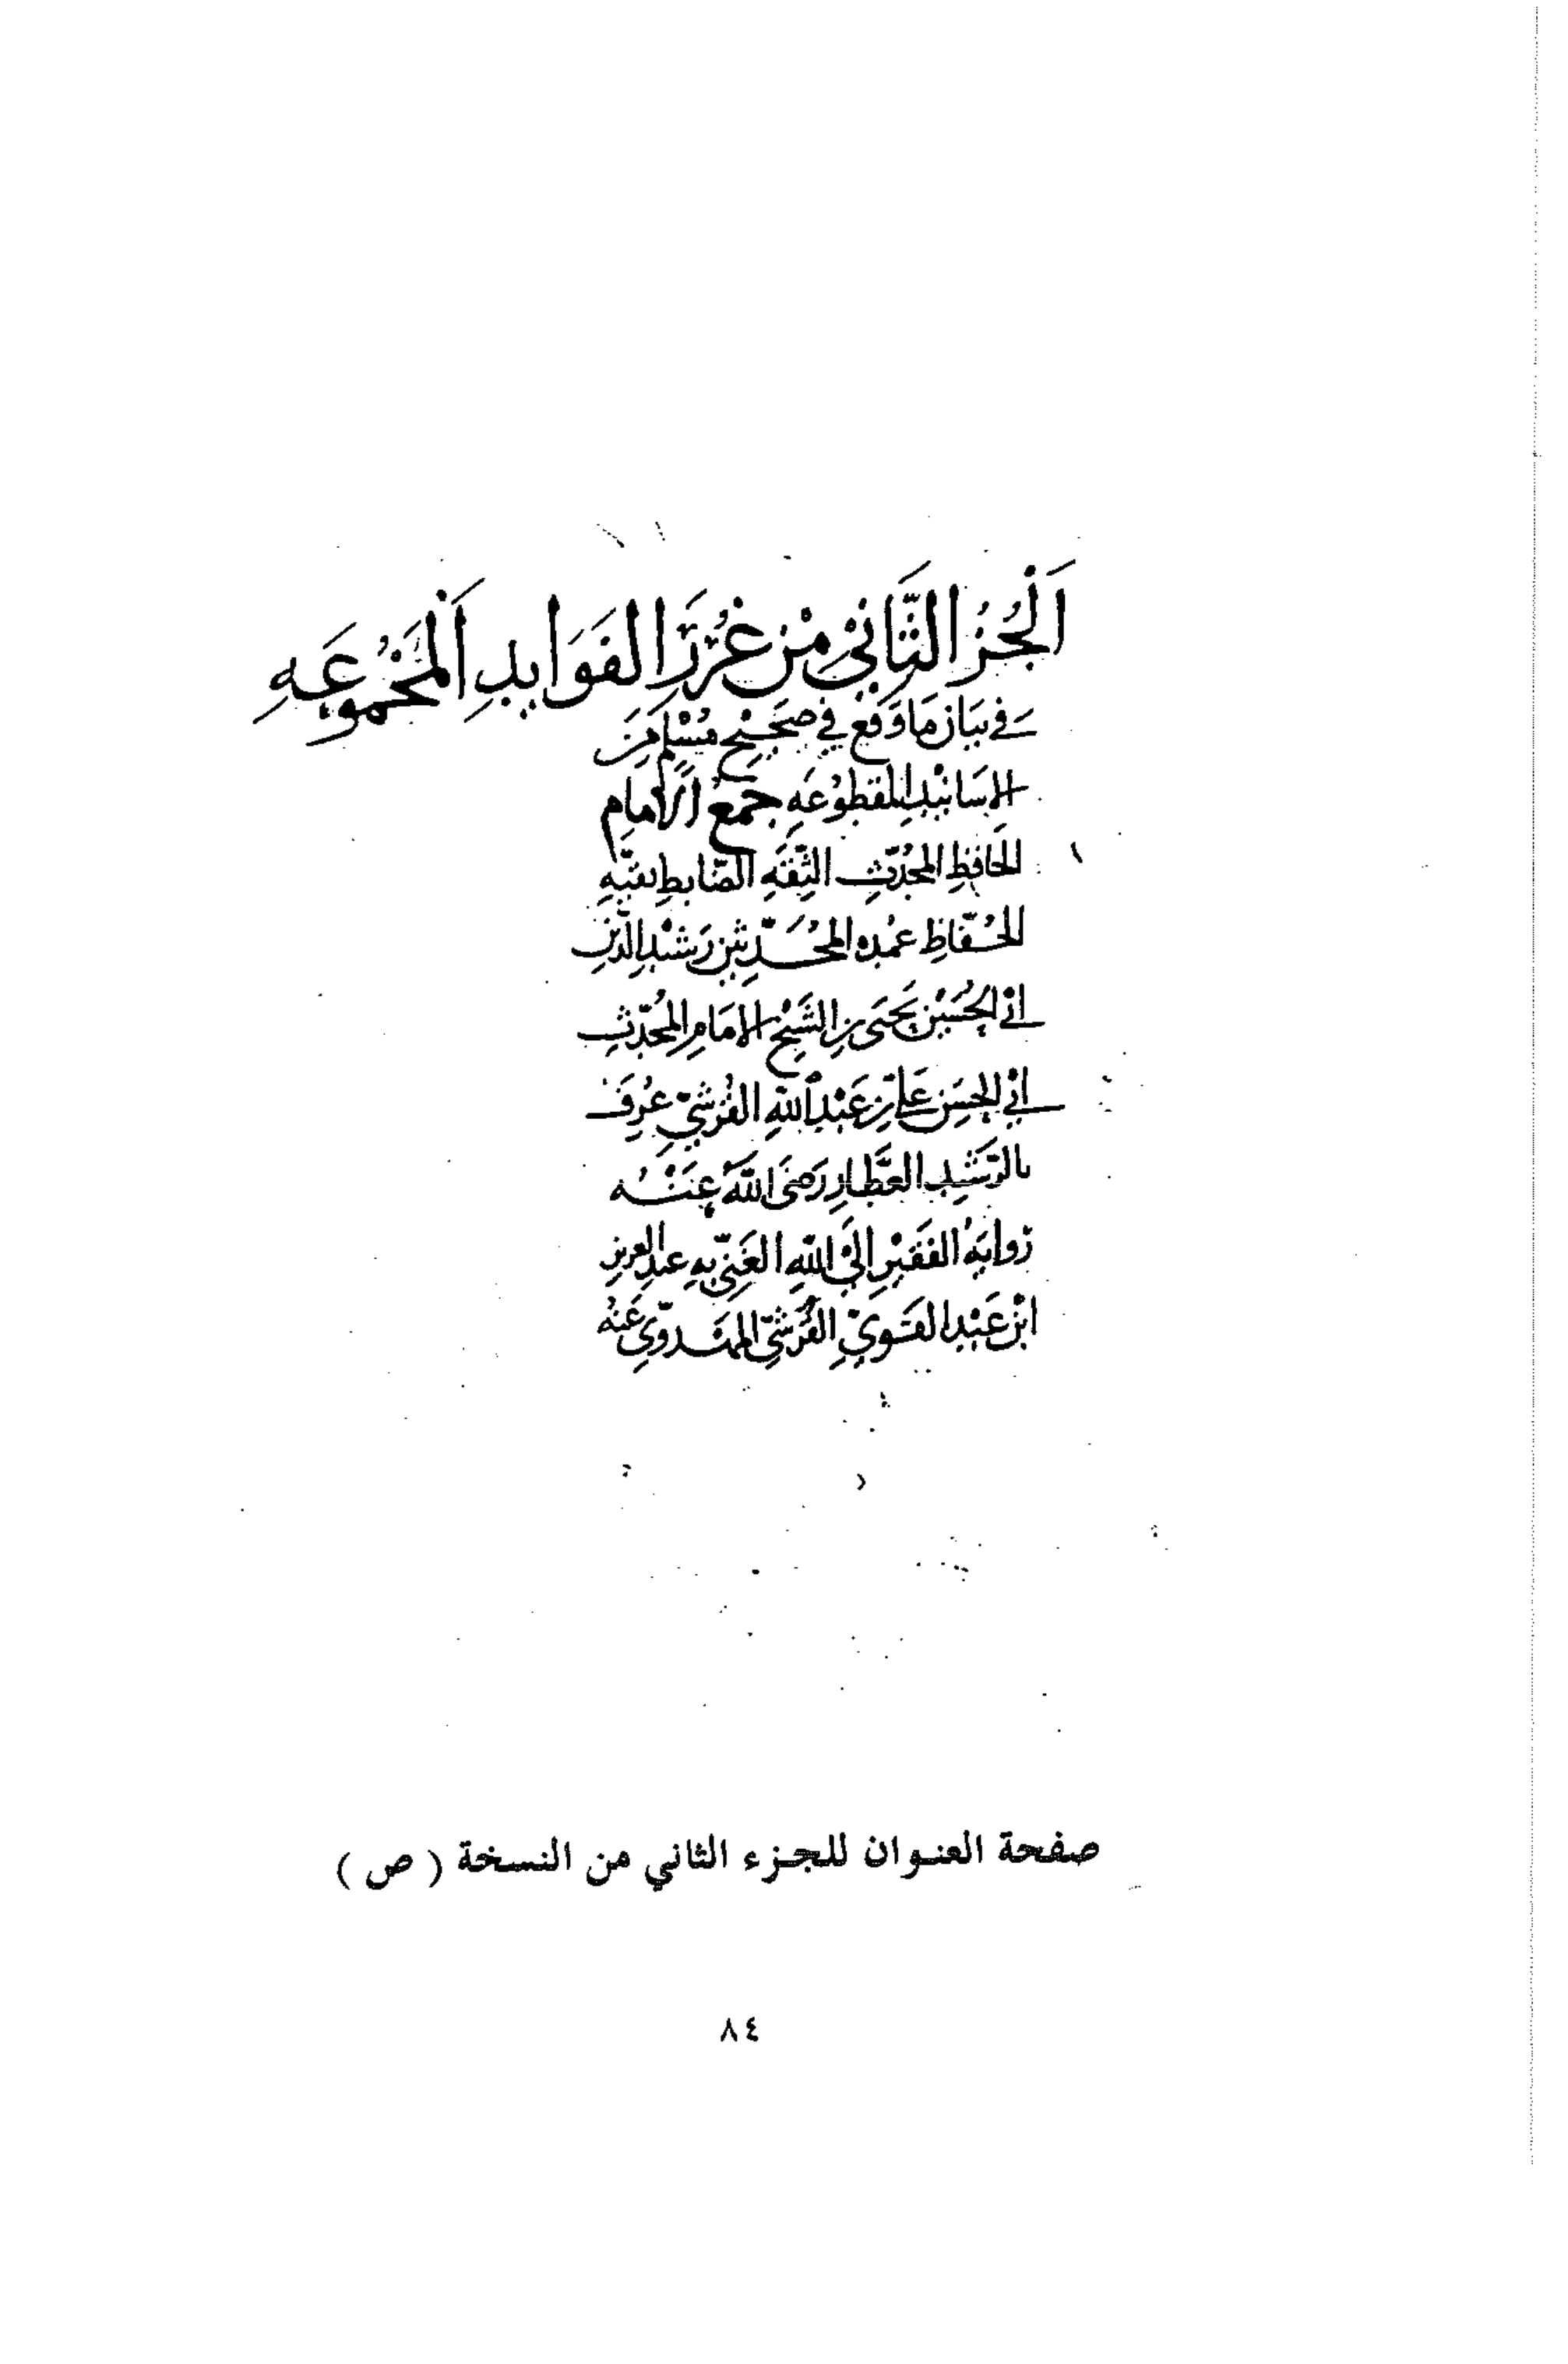 اَلْجُزُ الثَّانِيْ مِنْ غُرَرِ الفَوَايِدِ اَلْمَجْمُوعَهِ
فِي بَيَانِ مَا وَقَعَ فِي صَحِيْحِ مُسْلِمٍ مِنَ
الاسَانِيْدِ المقطُوْعَهِ جمعُ الاِمامِ
الحَافِظِ المحُدّثِ الثِقَهِ الضّابِطِ بقيّهِ
الحُفّاظِ عُمْدهِ المحُدّثينَ رَشيْدِ الدّينِ
ابي الحُسَيْن يَحْيَى بنِ الشَّيْخِ الامَامِ المحُدّثِ
ابي الحسَنِ عَلي بنِ عَبْدِ اللّهِ القُرشيّ عُرِفَ
بالرّشَيْدِ العَطَّارِ رَضيَ اللّهُ عَنْهُ
روايَهُ الفَقيْرِ اليْ اللّهِ الغَنيّ بهِ عبدِ العزيزِ
ابنِ عَبْدِ القَويْ القُرشيّ المَهْدَويّ عَنهُ
صفحة العنوان للجزء الثاني من النسخة ( ص )
٨٤